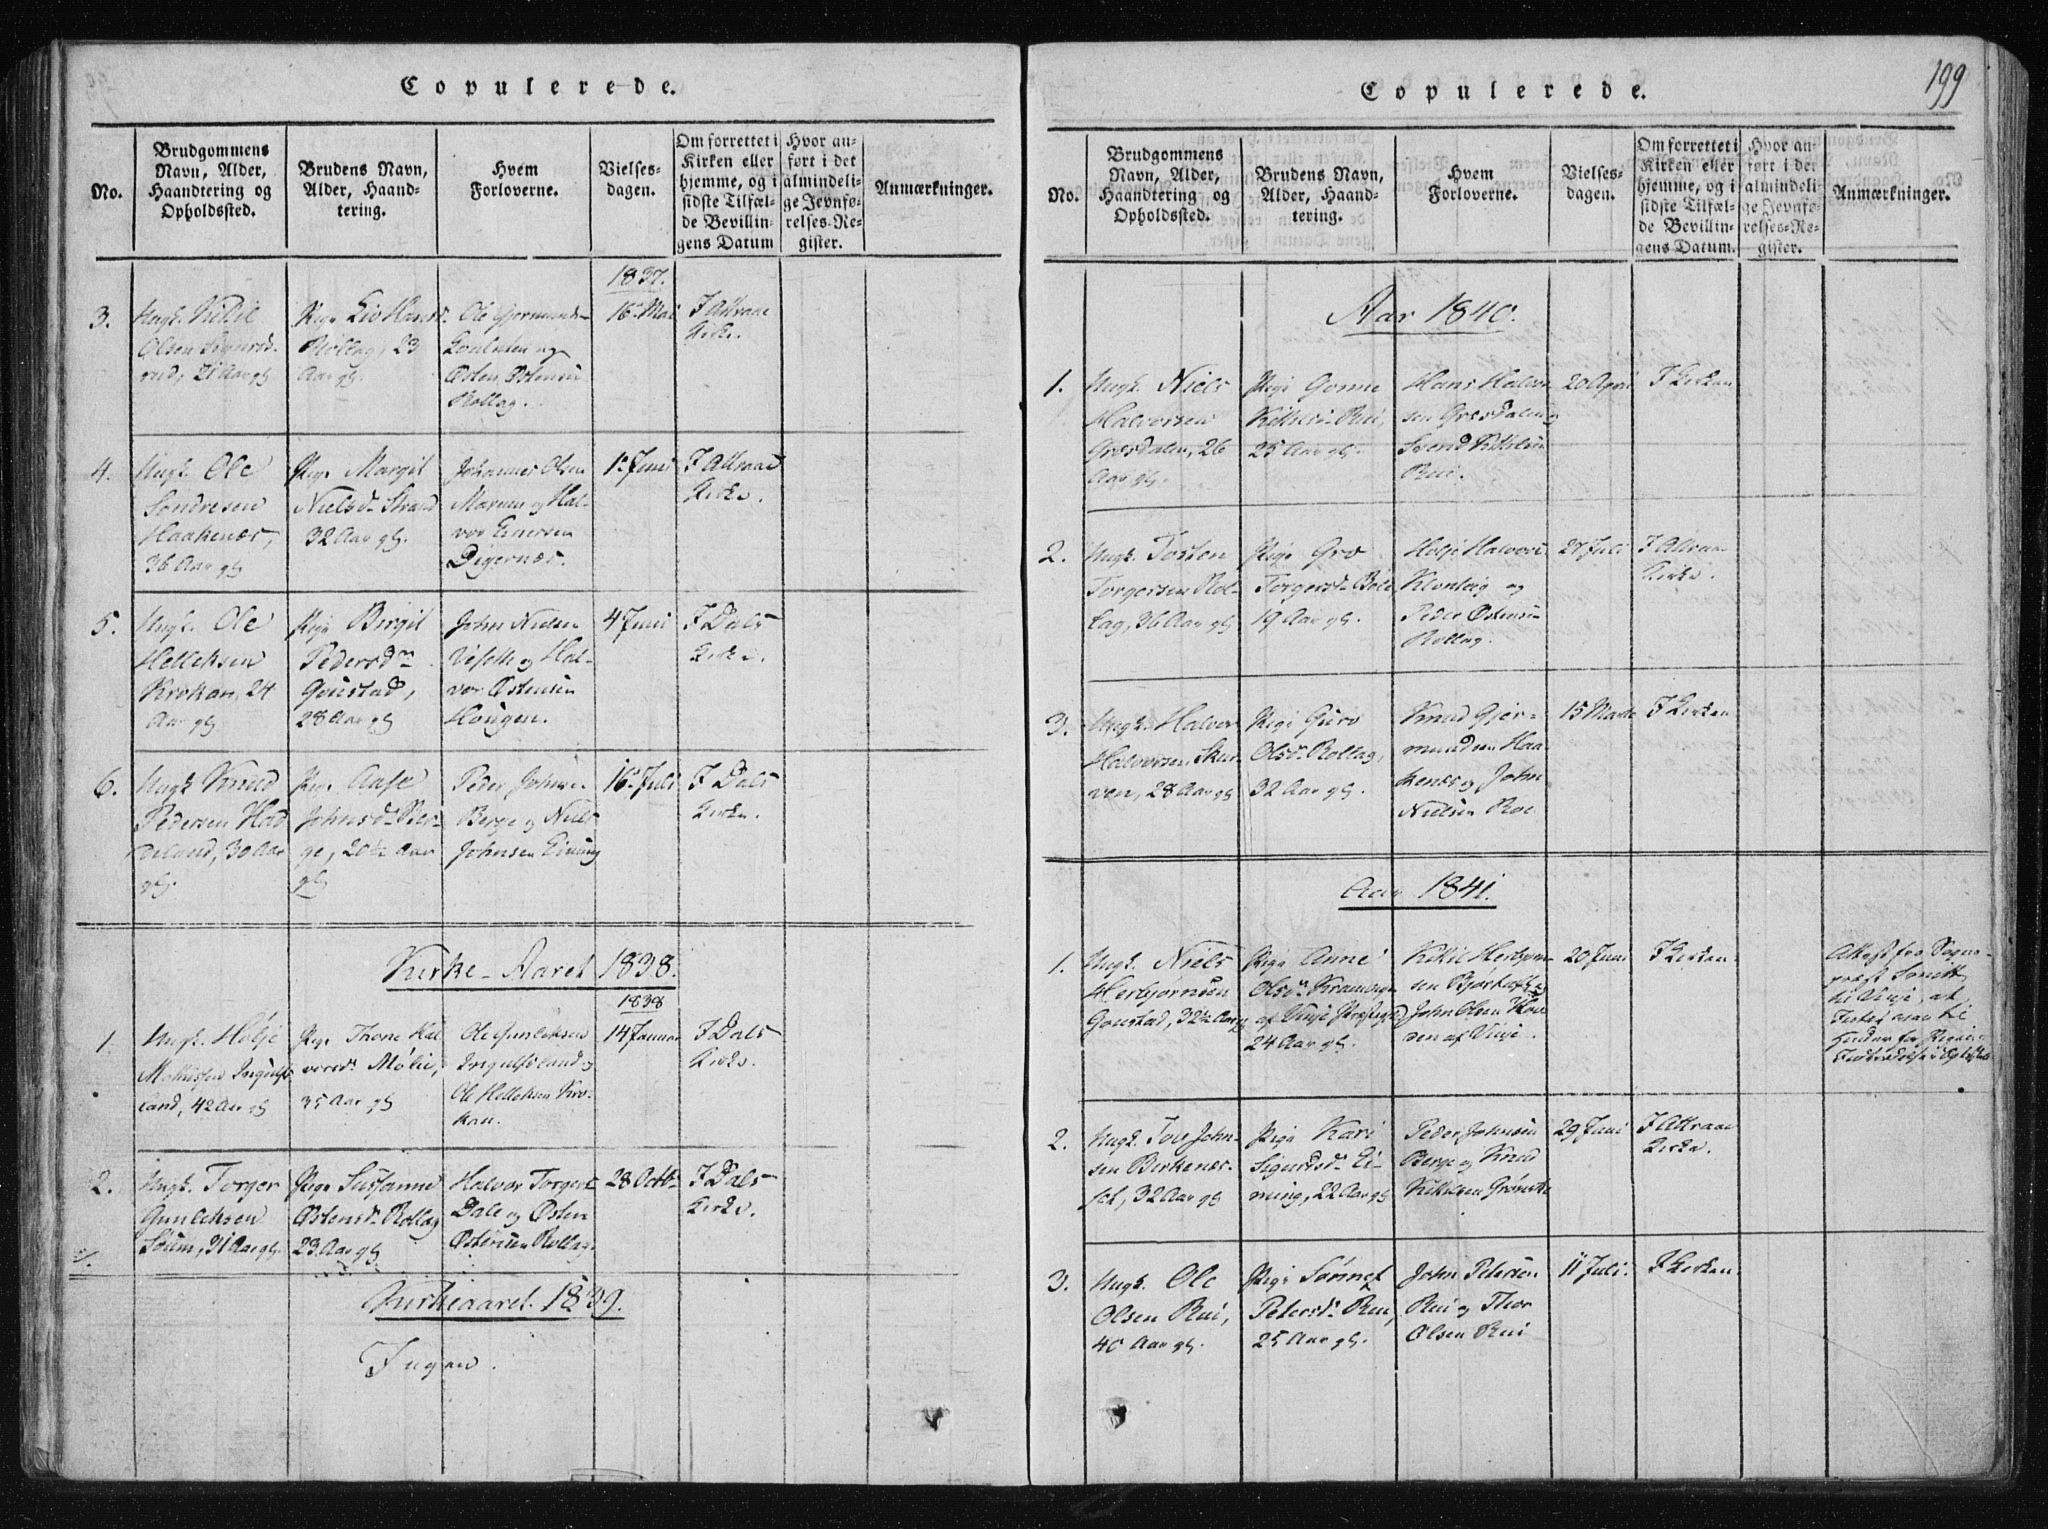 Copulerede.
No.
Brudgommens
Navn, Alder,
Haandtering og
Opholdssted.
Brudens Navn,
Alder, Haand-
tering.
Hvem
Forloverne.
Vielses-
dagen.
Om forrettet i
Kirken eller
hjemme, og i
sidste Tilfæl-
de Bevillin-
gens Datum
Hvor an-
ført i det
almindeli-
ge Jevnfø-
relses-Re-
gister.
Anmærkninger.
1837.
3.
Ungk.
Olsen Sigurds-
rud, 21 Aar gl
Pige Liv Hansd.
Rollag, 23
Aar gl.
Ole Gjermunds-
og
Østen Østensen
Rollag.
16 Mai
I Attraae
Kirke.
4.
Ungk. Ole
Sondresen
Haakenæs,
36 Aar gl
Pige Margit
Nielsd. Strand
32 Aar gl.
Johannes Olsen
Marum og Hal-
vor Einersen
Digernæs.
1 Juni
I Attraae
Kirke.
5.
Ungk. Ole
Helleksen
Krokan, 24
Aar gl
Pige Birgit
Pedersd.
Goustad,
28 Aar gl
John Nielsen
Vesetle og Hal-
vor Østensen
Hougen.
4 Juni
I Dals
Kirke.
6.
Ungk Knud
Pedersen Had
deland, 30 Aar
gl.
Pige Aase
Johnsd. Ber-
ge, 20½ Aar
gl
Peder Johnsen
Berge og Niels
Johnsen Einung
16 Juli
I Dals
Kirke.
Kirke-Aaret 1838.
1838
1.
Ungk. Holje
Mathisen Ingulfs
land, 42 Aar gl
Pige Thone Hal
vorsd. Møli,
35 Aar gl
Ole Gunleksen
Ingulfsland og
Ole Helleksen Kro-
kan.
14 Januar
I Dals
Kirke.
2.
Ungk. Torger
Gunleksen
31 Aar gl.
Pige Susanne
Østensd. Rollag
23 Aar gl
Halvor Torgers.
Dale og Østen
Østensen Rollag.
28 Octb.
I Dals
Kirke.
Kirkeaaret 1839.
Ingen.
199
Copulerede.
No.
Brudgommens
Navn, Alder,
Haandtering og
Opholdssted.
Brudens Navn,
Alder, Haand-
tering.
Hvem
Forloverne.
Vielses-
dagen.
Om forrettet i
Kirken eller
hjemme, og i
sidste Tilfæl-
de Bevillin-
gens Datum.
Hvor an-
ført i det
almindeli-
ge Jevnfø-
relses-Re-
gister.
Anmærkninger.
Aar 1840.
1.
Ungk. Niels
Halvorsen
Græsdalen, 26
Aar gl.
Pige Gonne
Kittelsd. Rui,
25 Aar gl.
Hans Halvor
sen Græsdalen og
Svend Kittelsen
Rui.
20 April
I Kirken
2.
Ungk. Torsten
Torgersen Rol-
lag, 36 Aar gl
Pige Gro
Torgersd. Bøle
19 Aar gl.
Holje Halvors.
og
Peder Østensen
Rollag.
27 Juli
I Attraae
Kirke.
3.
Ungk. Halvor
Halvorsen Skar-
ven, 28 Aar gl
Pige Guro
Olsd. Rollag,
32 Aar gl.
Knud Gjer-
mundsen Haa-
kenæs og John
Nielsen Roe
15 Marts
I Kirken
Aar 1841.
1.
Ungk. Niels
Herbjørnsen
Goustad, 32½ Aar gl
Pige Anne
Olsd.
af Vinje Præstegl.
24 Aar gl.
Kittil Herbjørn-
sen
John Olsen
den af Vinje.
20 Juni
I Kirken.
Attest fra Sogne-
præst
til Vinje, at
2.
Ungk. Tov John-
sen Birkenæs-
32 Aar gl
Pige Kari
Sigurdsd. Ei-
nung, 22 Aar gl
Peder Johnsen
Berge og Knud
Kittilsen
29 Juni
I Attraae
Kirke.
3.
Ungk. Ole
Olsen Rui,
40 Aar gl.
Pige Sønnef
Petersd. Rui,
25 Aar gl.
John Petersen
Rui og Thor
Olsen Rui
11 Juli.
I Kirken.